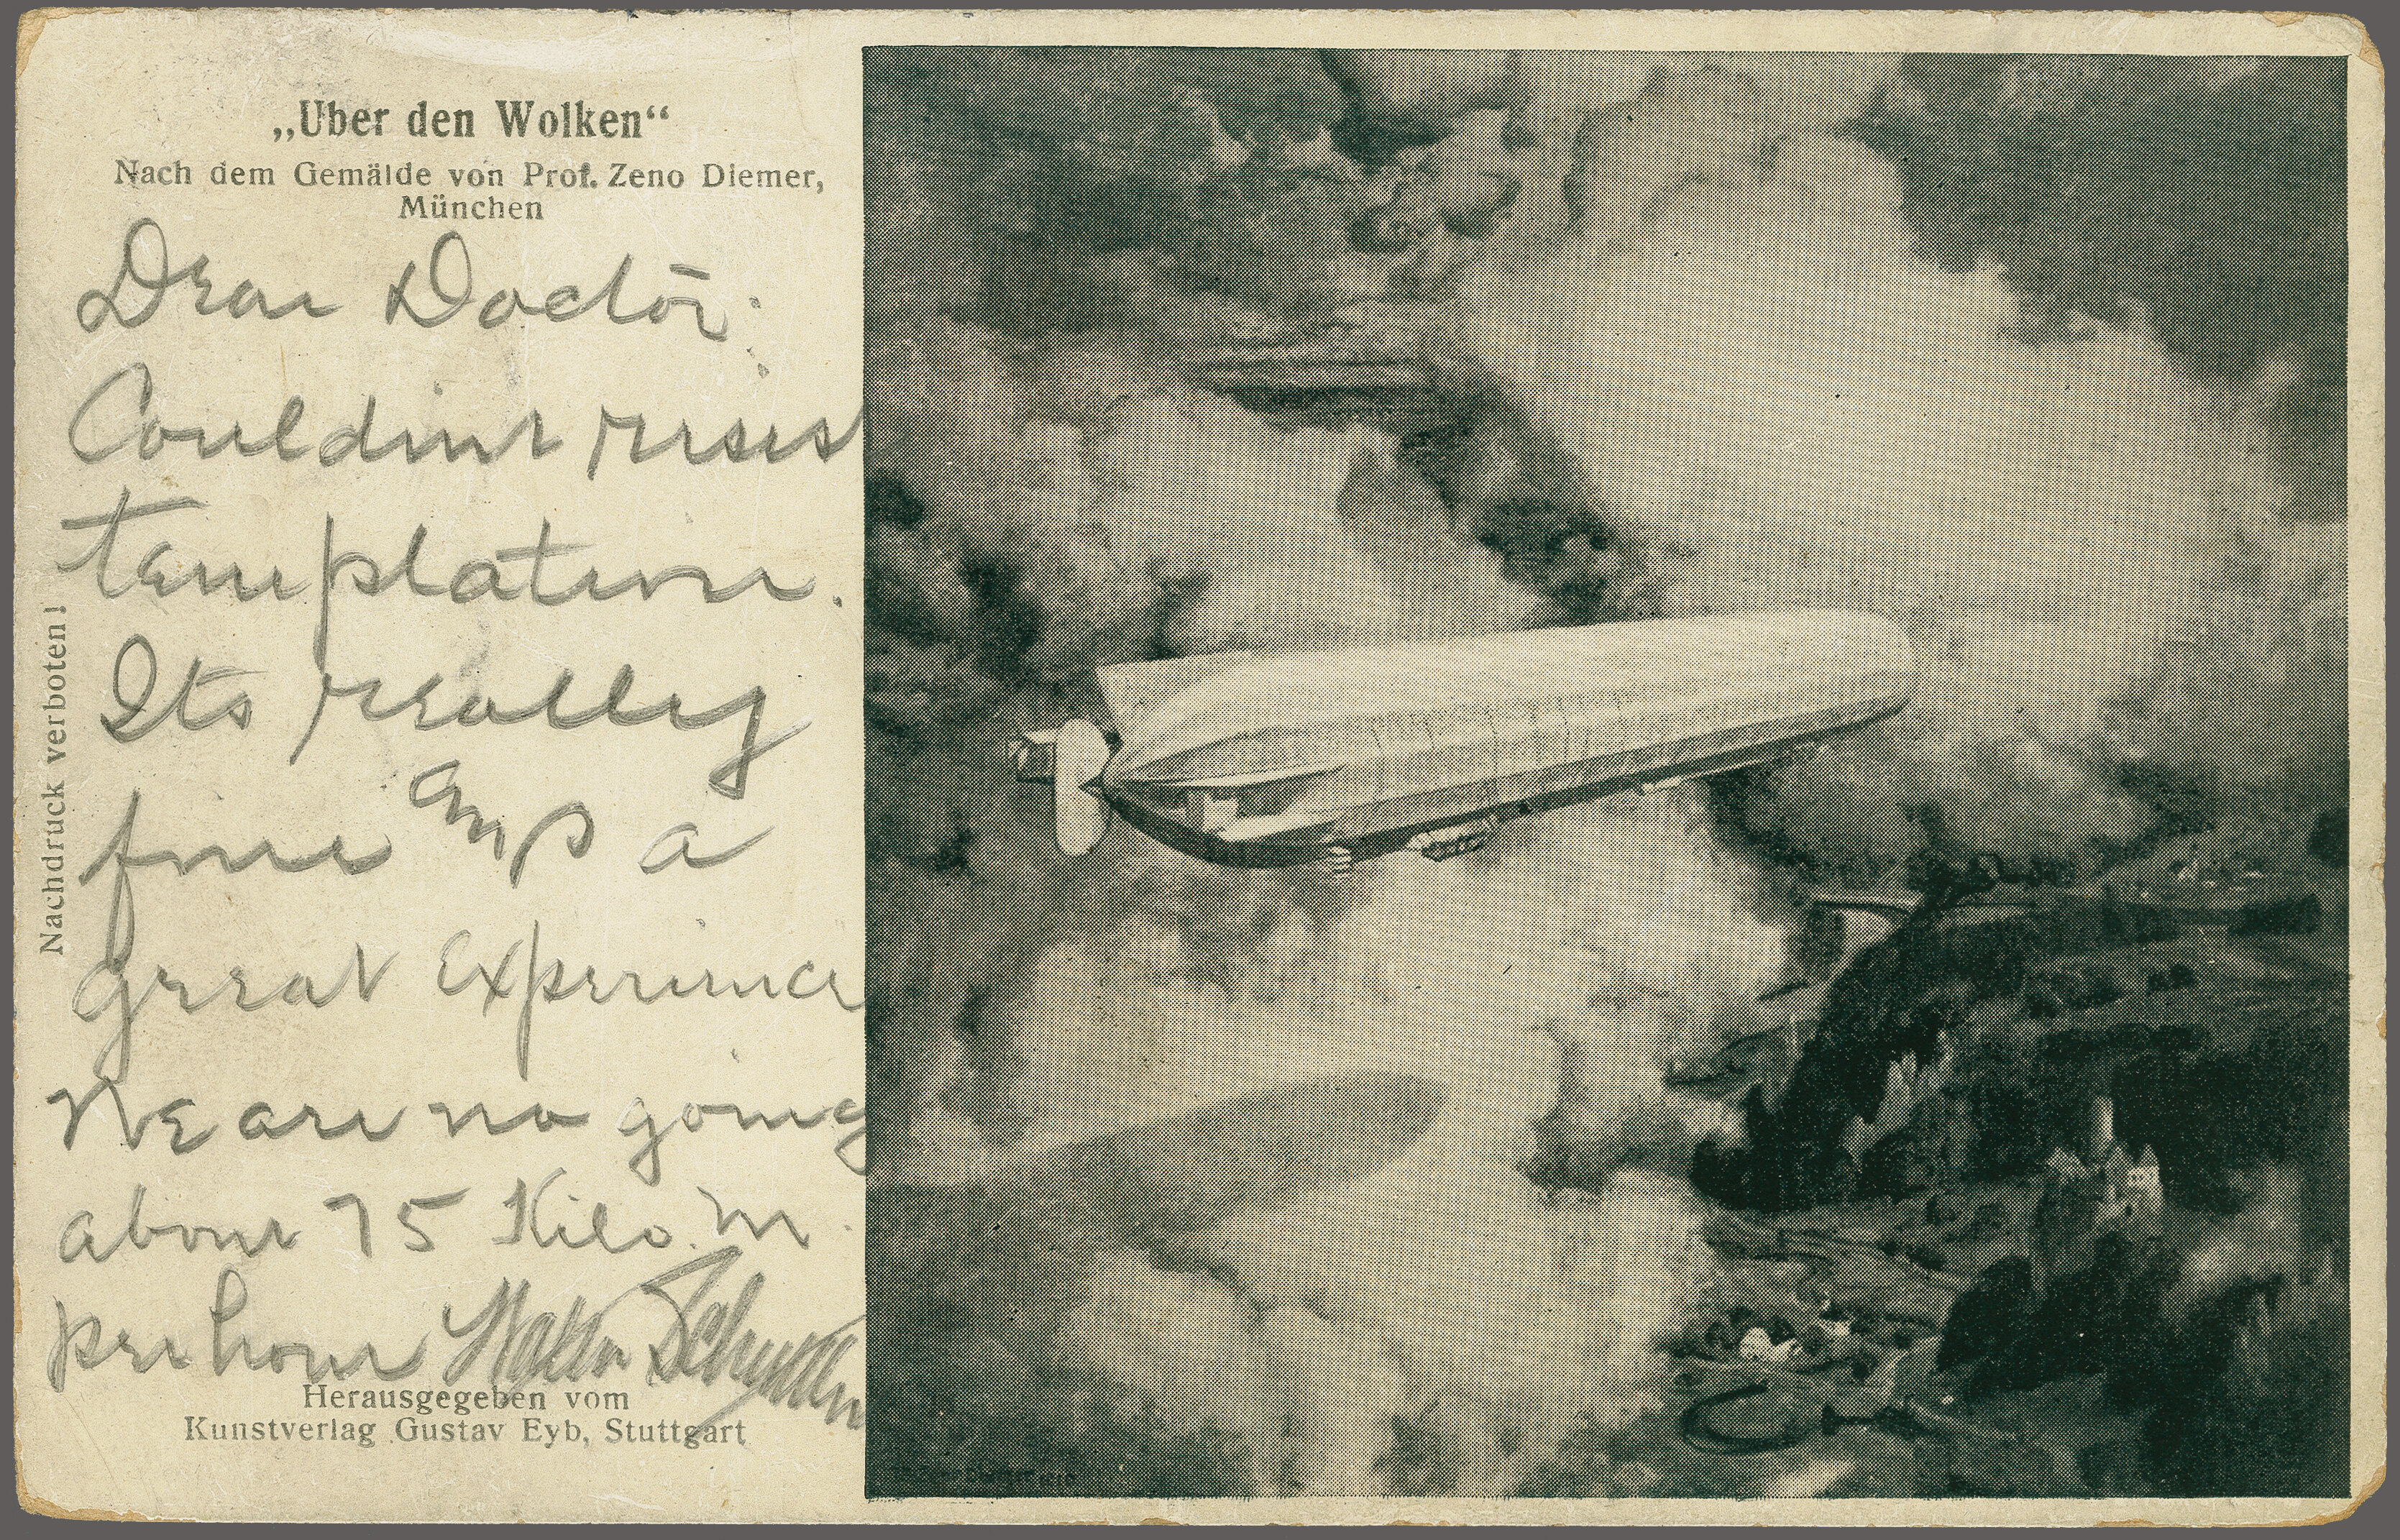 „Uber den Wolken“
Nach dem Gemälde von Prof. Zeno Diemer,
München
Dear Doctor:
Couldint resist
temptation.
Its really
fine and a
great Experience
We are no going
about 75 Kilo. m.
per hour Walter
Herausgegeben vom
Kunstverlag Gustav Eyb, Stuttgart
Nachdruck verboten!